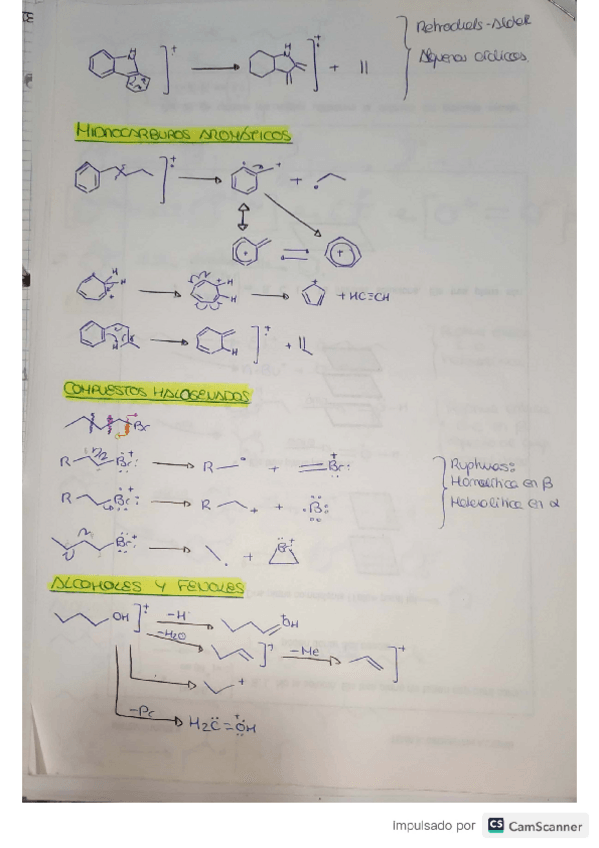 Retrodiels-Alder
Alquenos cíclicos
H
H
+ ||
HIDROCARBUROS AROMÁTICOS
H
H
H
H
+ HC≡CH
H
H
+
COMPUESTOS HALOGENADOS
Br
R Br: → R + Br:
Rupturas:
Homolítica en β
Heterolítica en α
R Br: → R + Br:
Br: → + Br
ALCOHOLES Y FENOLES
OH
-H
OH
-H2O
-Me
-Pr
H2C=OH
Impulsado por CS CamScanner